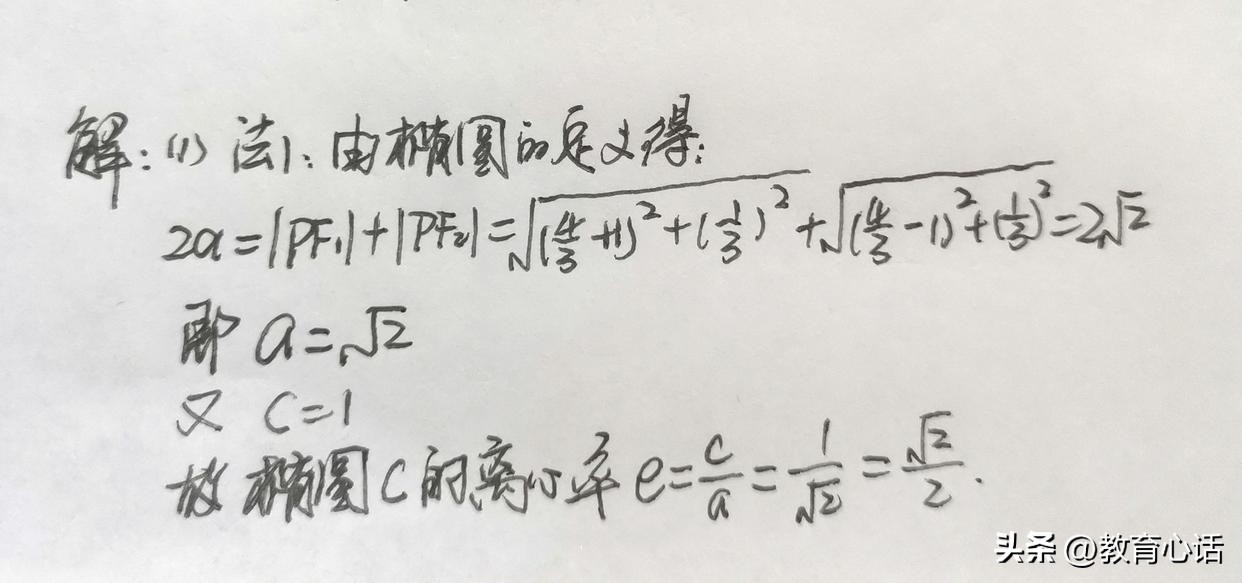 解：(1) 法1：由椭圆的定义得：
2a=|PF₁|+|PF₂|=√((4/3+1)²+(1/3)²)+√((4/3-1)²+(1/3)²)=2√2
即 a=√2
又 c=1
故椭圆C的离心率 e=c/a=1/√2=√2/2.
头条 @教育心话